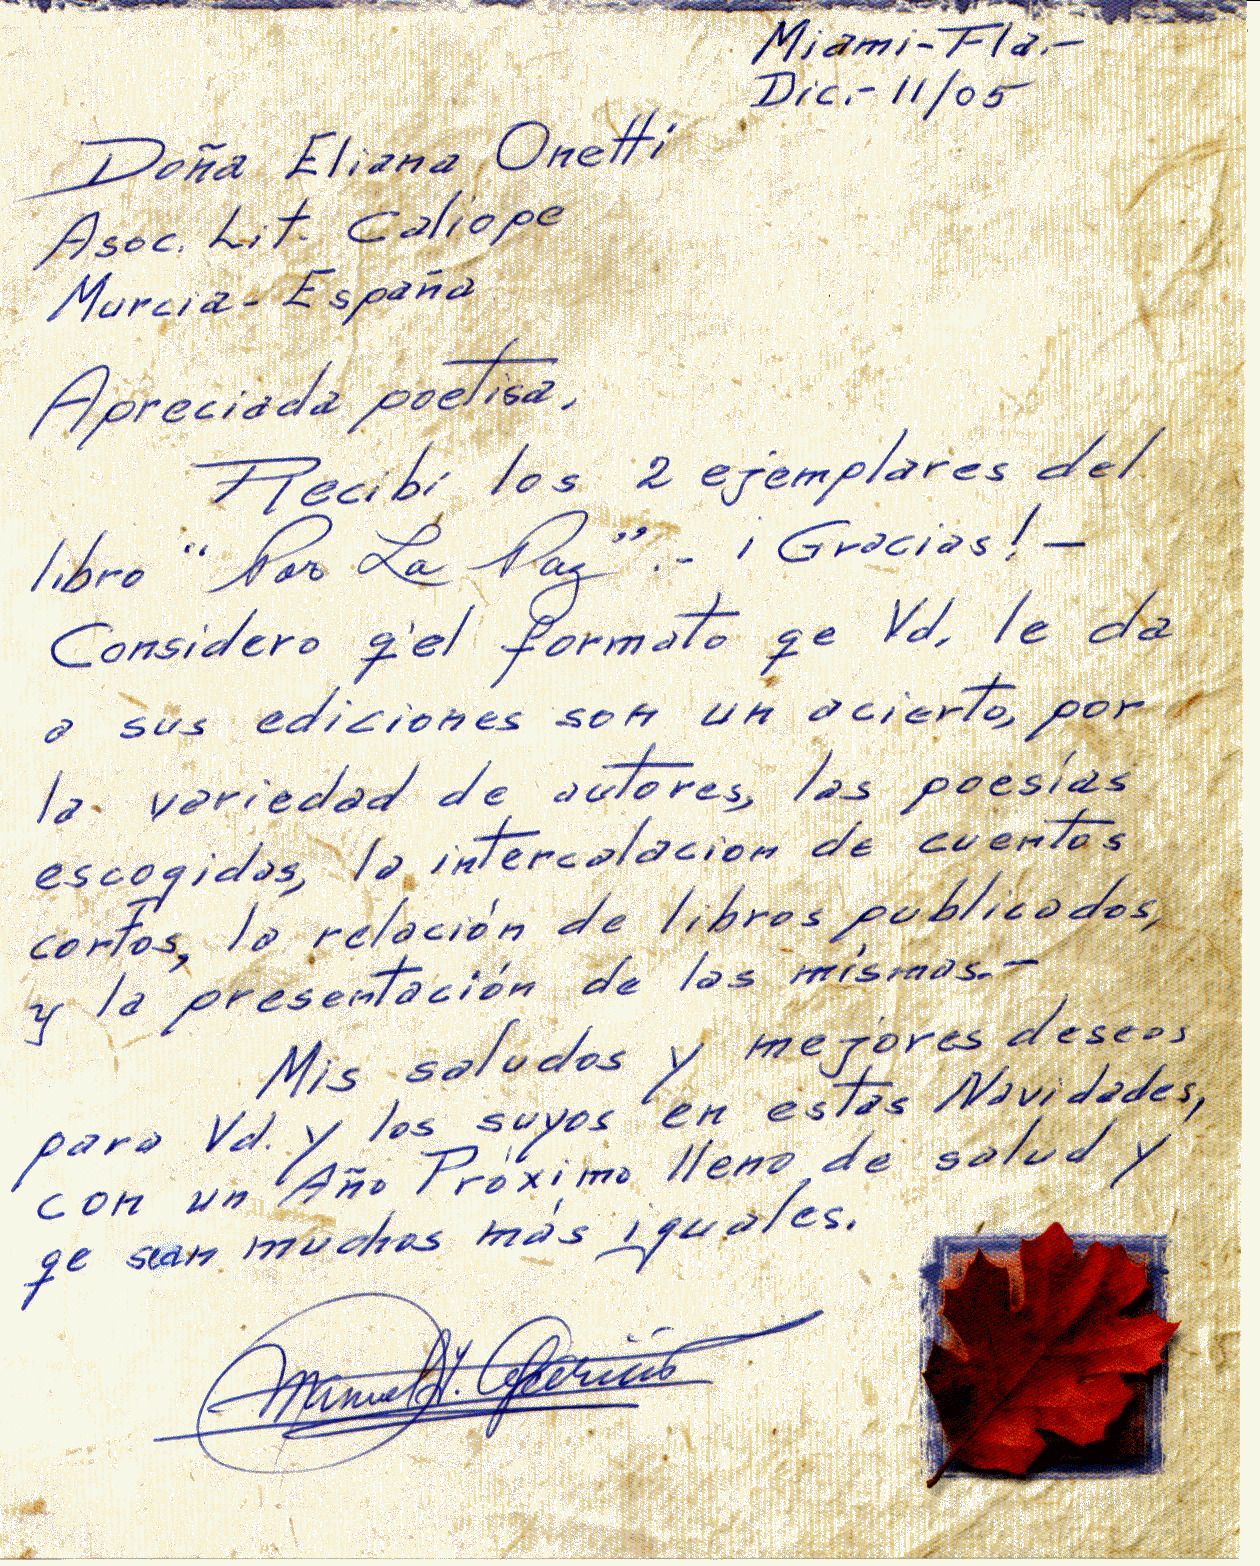 Miami-Fla.-
Dic.- 11/05
Doña Eliana Onetti
Asoc. Lit. Caliope
Murcia- España
Apreciada poetisa,
Recibí los 2 ejemplares del
libro "Por La Paz".- ¡Gracias!-
Considero q'el formato qe Vd. le da
a sus ediciones son un acierto, por
la variedad de autores, las poesías
escogidas, la intercalacion de cuentos
cortos, la relación de libros publicados,
y la presentación de las mismas.-
Mis saludos y mejores deseos
para Vd. y los suyos en estas Navidades,
con un Año Próximo lleno de salud y
qe sean muchos más iguales.
Manuel